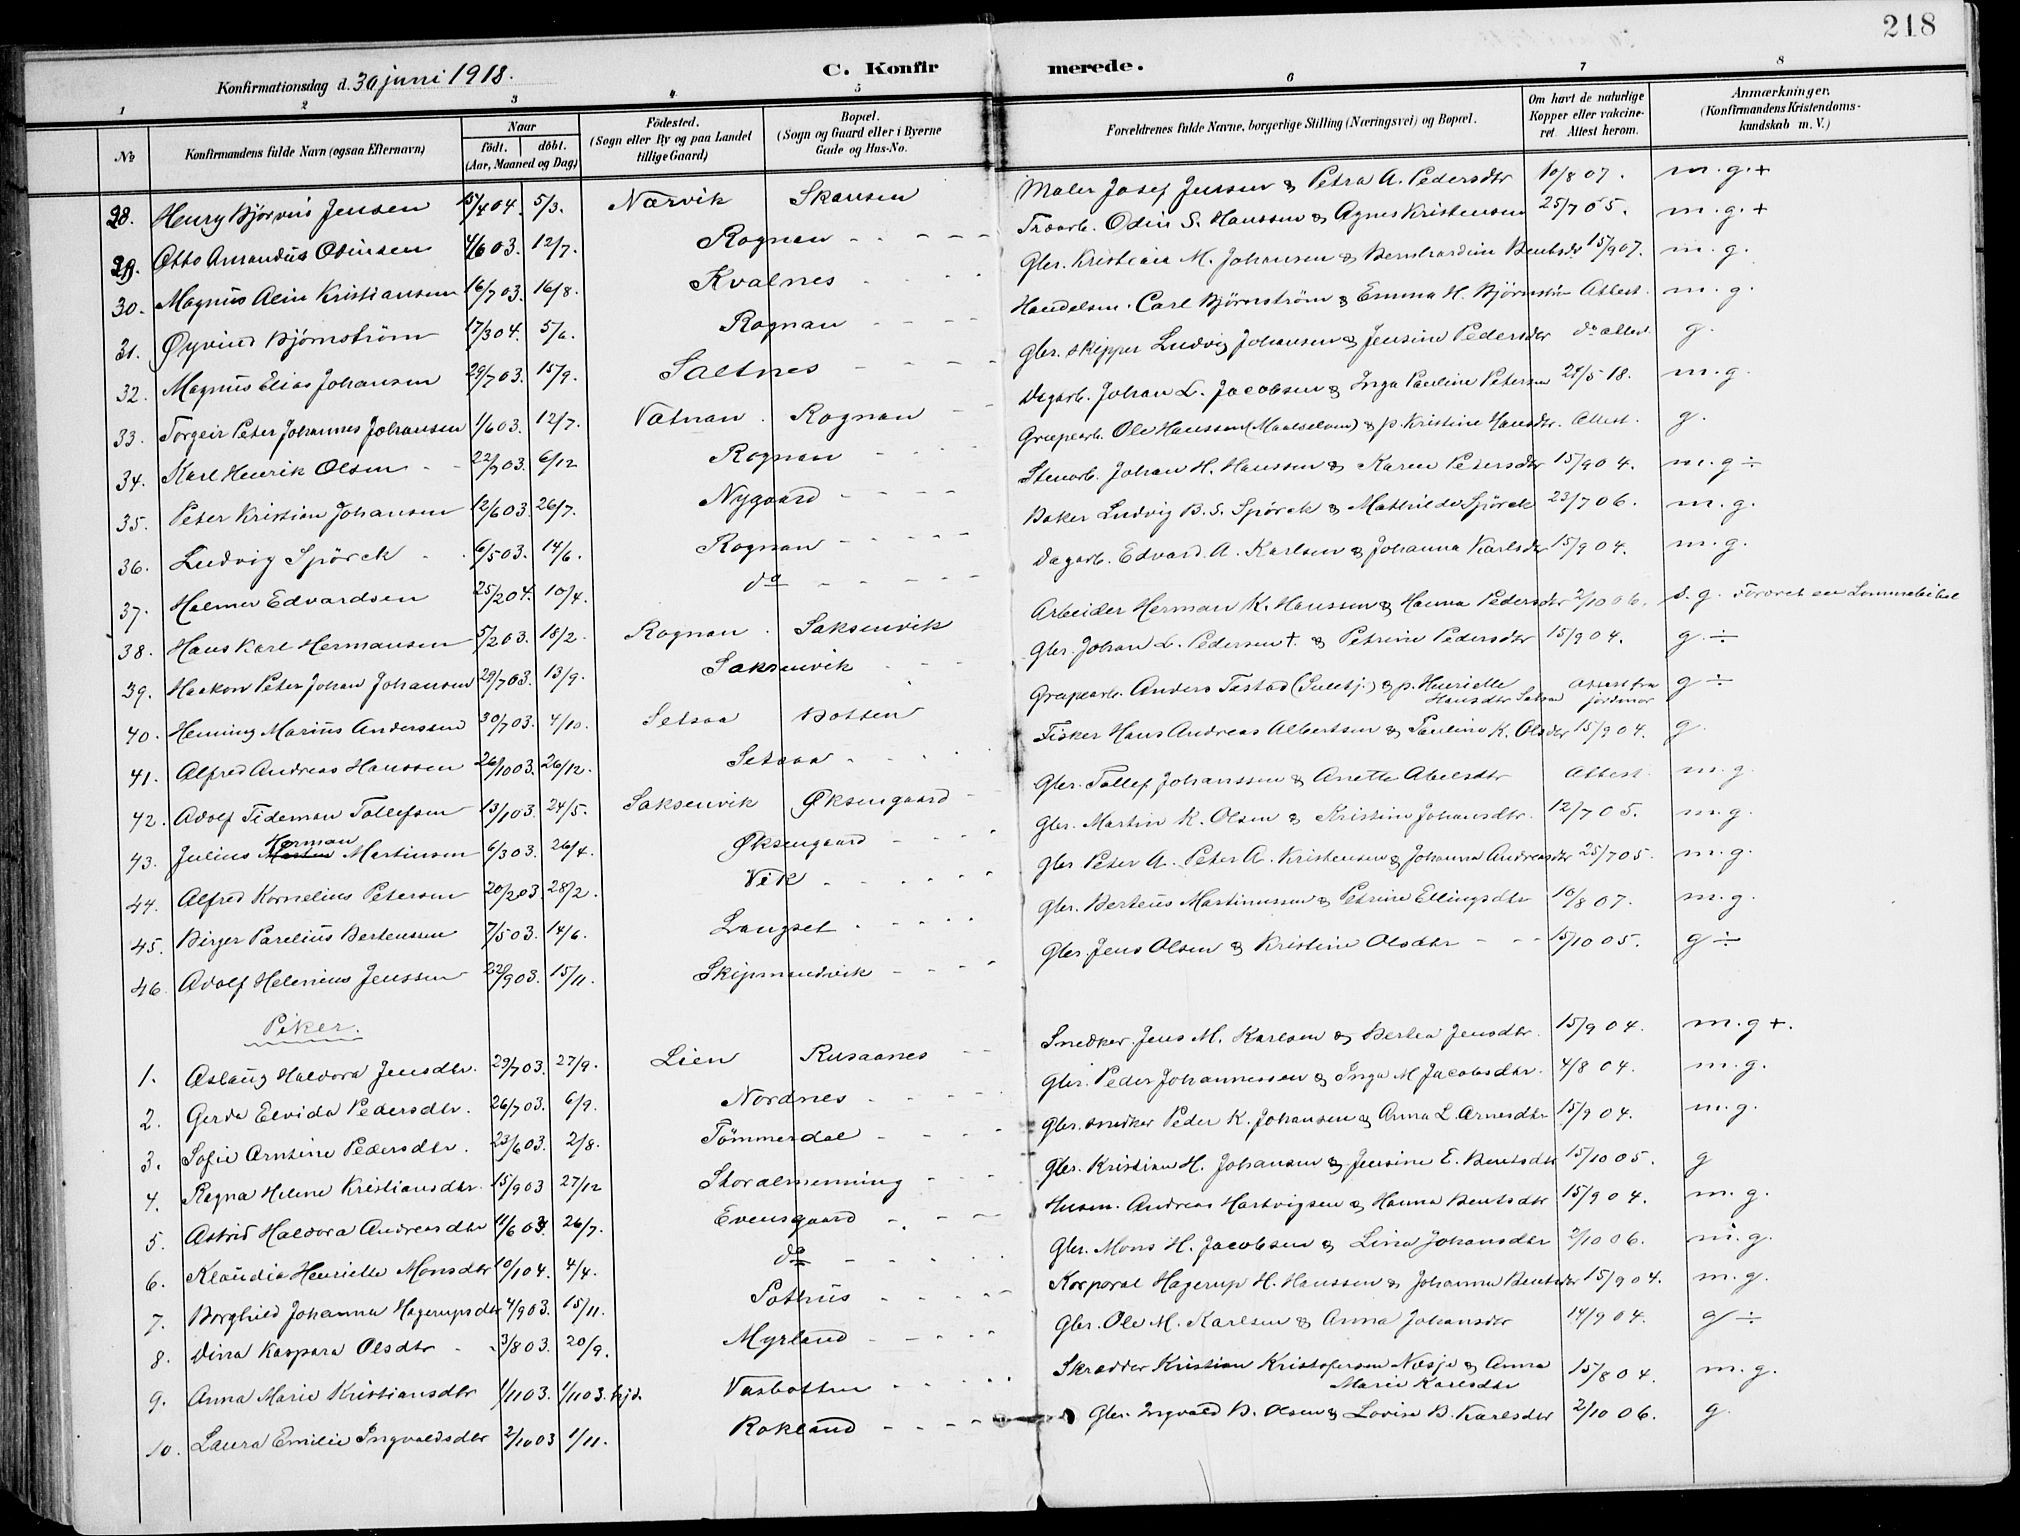 218
Konfirmationsdag d. 30 juni 1918.
C. Konfirmerede.
1 2 3 4 5 6 7 8
No
Konfirmandens fulde Navn (ogsaa Efternavn)
Naar
födt. döbt.
(Aar, Maaned og Dag)
Födested.
(Sogn eller By og paa Landet
tillige Gaard)
Bopæl.
(Sogn og Gaard eller i Byerne
Gade og Hus-No.
Forældrenes fulde Navne, borgerlige Stilling (Næringsvei) og Bopæl.
Om havt de naturlige
Kopper eller vakcine-
ret. Attest herom.
Anmærkninger.
(Konfirmandens Kristendoms-
kundskab m. V.)
28. Henry Bjørvis Jensen 15/4 04. 5/3. Narvik Skansen Maler Josef Jensen & Petra A. Pedersdtr 10/8 07. m.g.+
29. Otto Amandus Odinsen 4/6 03. 12/7. Rognan Træarb. Odin S. Hanssen & Agnes Kristensen 25/7 05. m.g.+
30. Magnus Alin Kristiansen 16/7 03. 16/8. Kvalnes Gbr. Kristian M. Johansen & Bernhardine Bentsdr 15/9 07. m.g.
31. Øyvind Bjørnstrøm 17/3 04. 5/6. Rognan Handelsm. Carl Bjørnstrøm & Emma H. Bjørnstrøm Attest. m.g.
32. Magnus Elias Johansen 29/7 03. 15/9. Saltnes Gbr. skipper Ludvig Johansen & Jensine Pedersdtr do attest g.
33. Torgeir Peter Johannes Johansen 1/6 03. 12/7. Vatnan. Rognan Dagarb. Johan L. Jacobsen & Inga Pauline Petersen 24/5 18. m.g.
34. Karl Henrik Olsen 22/7 03. 6/12 Rognan Grubearb. Ole Hanssen (Maalselven) & p. Kristine Hansdtr. Attest. g.
35. Peter Kristian Johansen 12/6 03. 26/7. Nygaard Stenarb. Johan H. Hanssen & Karen Petersdtr 15/9 04. m.g ÷
36. Ludvig Spörck 6/5 03. 14/6. Rognan Baker Ludvig B. S. Spörck & Mathilde Spörck 23/7 06. m.g.
37. Halmer Edvardsen 25/2 04. 10/4. do Dagarb. Edvard A. Karlsen & Johanna Karlsdtr 15/9 04. m.g.
38. Hans Karl Hermansen 5/2 03. 18/2. Rognan. Saksenvik Arbeider Herman K. Hanssen & Hanna Pedersdtr 2/10 06. s.g. Foræret en Lommebibel
39. Haakon Peter Johan Johansen 29/7 03. 13/9. Saksenvik Gbr. Johan L. Pedersen †. & Petrine Pedersdtr 15/9 04. g ÷
40. Henning Marius Anderssen 30/7 03. 4/10. Setsaa Botten Grubearb. Anders Testad (Sulitj.) & p. Henriette Hansdtr Setsaa Attest fra jordmor g ÷
41. Alfred Andreas Hanssen 26/10 03. 26/12. Setsaa Fisker Hans Andreas Albertsen & Pauline K. Olsdtr 15/9 04. g.
42. Adolf Tideman Tollefsen 13/1 03. 24/5. Saksenvik Øksengaard Gbr. Tollef Johanssen & Anette Abelsdtr Attest. m.g.
43. Julius Herman Martinsen 6/3 03. 26/4. Øksengaard Gbr. Martin K. Olsen & Kristine Johansdtr. 12/7 05. m.g.
44. Alfred Kornelius Petersen 20/2 03. 28/2. Vik Gbr Peter A. Peter A. Kristensen & Johanna Andreasdtr 25/7 05. m.g.
45. Birger Parelius Berteussen 7/5 03. 14/6. Langset Gbr. Berteus Martinussen & Petrine Ellingsdtr 10/8 07. m.g.
46. Adolf Helenius Jenssen 22/9 03. 15/11. Skipmandvik Gbr. Jens Olsen & Kristine Olsdtr 15/10 05. g ÷
Piker.
1. Aslaug Haldora Jensdtr. 29/7 03. 27/9. Lien Rusaanes Snedker Jens M. Karlsen & Bertea Jensdtr. 15/9 04. m.g +.
2. Gerda Elvida Pedersdtr. 26/7 03. 6/9. Nordnes Gbr. Peder Johannessen & Inga M Jacobsdtr. 4/8 04. m.g.
3. Sofie Arntine Pedersdtr. 23/6 03. 2/8. Tömmerdal Gbr. snedker Peder K. Johansen & Anna L. Arnesdtr 15/9 04. m.g.
4. Ragna Helene Kristiansdtr. 15/9 03 27/12 Storalmenning Gbr. Kristian H. Johansen & Jensine E. Bentsdtr 15/10 05. g
5. Astrid Haldora Andreasdtr 11/6 03 26/7. Evensgaard Husm. Andreas Hartvigsen & Hanna Bentsdtr 15/9 04. m.g.
6. Klaudia Henriette Monsdtr 10/1 04. 4/4. do Gbr. Mons H. Jacobsen & Lina Johansdtr 2/10 06. m.g.
7. Borghild Johanna Hagerupsdtr 4/9 03. 15/11. Pothus Korporal Hagerup H. Hanssen & Johanna Bentsdtr 15/9 04. m.g.
8. Dina Kaspara Olsdtr 3/8 03. 20/9. Myrland Gbr. Ole M. Karlsen & Anna Johansdtr 14/9 04. g ÷
9. Anna Marie Kristiansdtr 1/11 03. 1/11 03. hjd. Vasbotten Skrædder Kristian Kristofersen Næsje & Anna Marie Karlsdtr 15/8 04. m.g.
10. Laura Emilie Ingvaldsdtr 2/10 03 1/11. Rokland Gbr. Ingvald B. Olsen & Lovise B. Karlsdtr 2/10 06. g.